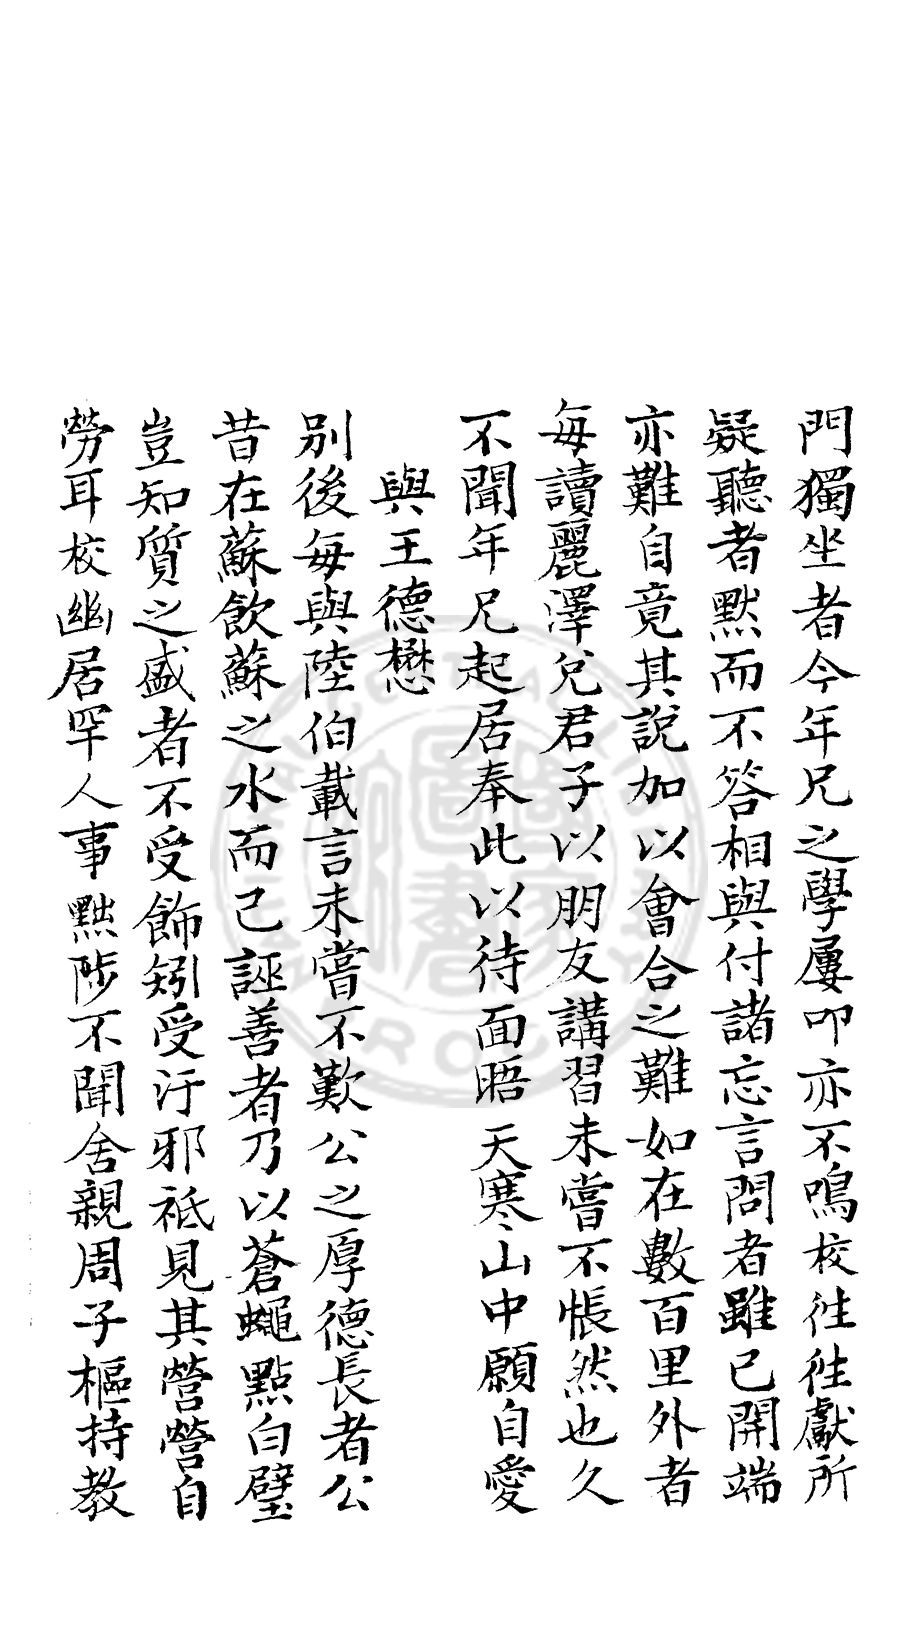 門獨坐者今年兄之學屢叩亦不鳴校徃徃獻所
疑聽者默而不答相與付諸忘言問者雖已開端
亦難自竟其說加以會合之難如在數百里外者
每讀麗澤兌君子以朋友講習未嘗不悵然也久
不聞年兄起居奉此以待面晤天寒山中願自愛
與王德懋
別後每與陸伯載言未嘗不歎公之厚德長者公
昔在蘇飲蘇之水而已誣善者乃以蒼蠅點白璧
豈知質之盛者不受飾矧受汙邪祇見其營營自
勞耳校幽居罕人事黜陟不聞舍親周子樞持教